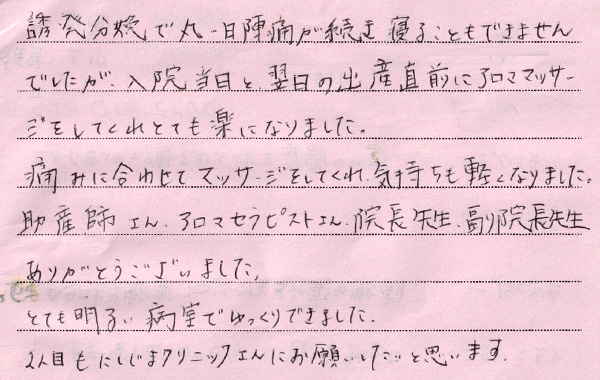 誘発分娩で丸一日陣痛が続き寝ることもできません
でしたが、入院当日と、翌日の出産直前にアロママッサー
ジをしてくれとても楽になりました。
痛みに合わせてマッサージをしてくれ、気持ちも軽くなりました。
助産師さん、アロマセラピストさん、院長先生、副院長先生
ありがとうございました。
とても明るい病室でゆっくりできました。
2人目もにしじまクリニックさんにお願いしたいと思います。